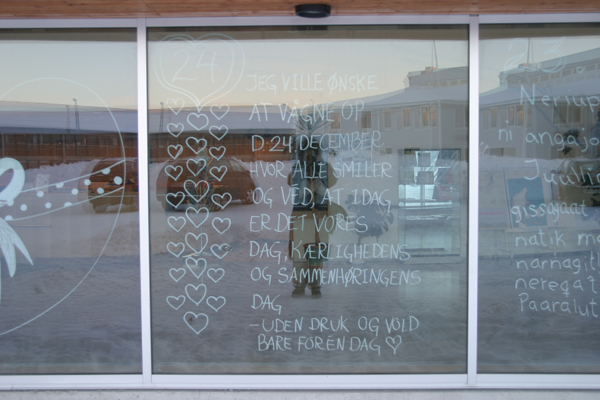 24
JEG VILLE ØNSKE
AT VÅGNE OP
D. 24 DECEMBER
HVOR ALLE SMILER
OG VED AT IDAG
ER DET VORES
DAG, KÆRLIGHEDENS
OG SAMMENHØRINGENS
DAG
- UDEN DRUK OG VOLD
BARE FOR ÉN DAG
23
Nerlup
ni angajo
Juulli
gissajaat
natik ma
narnagitl
neregat
Paarålut